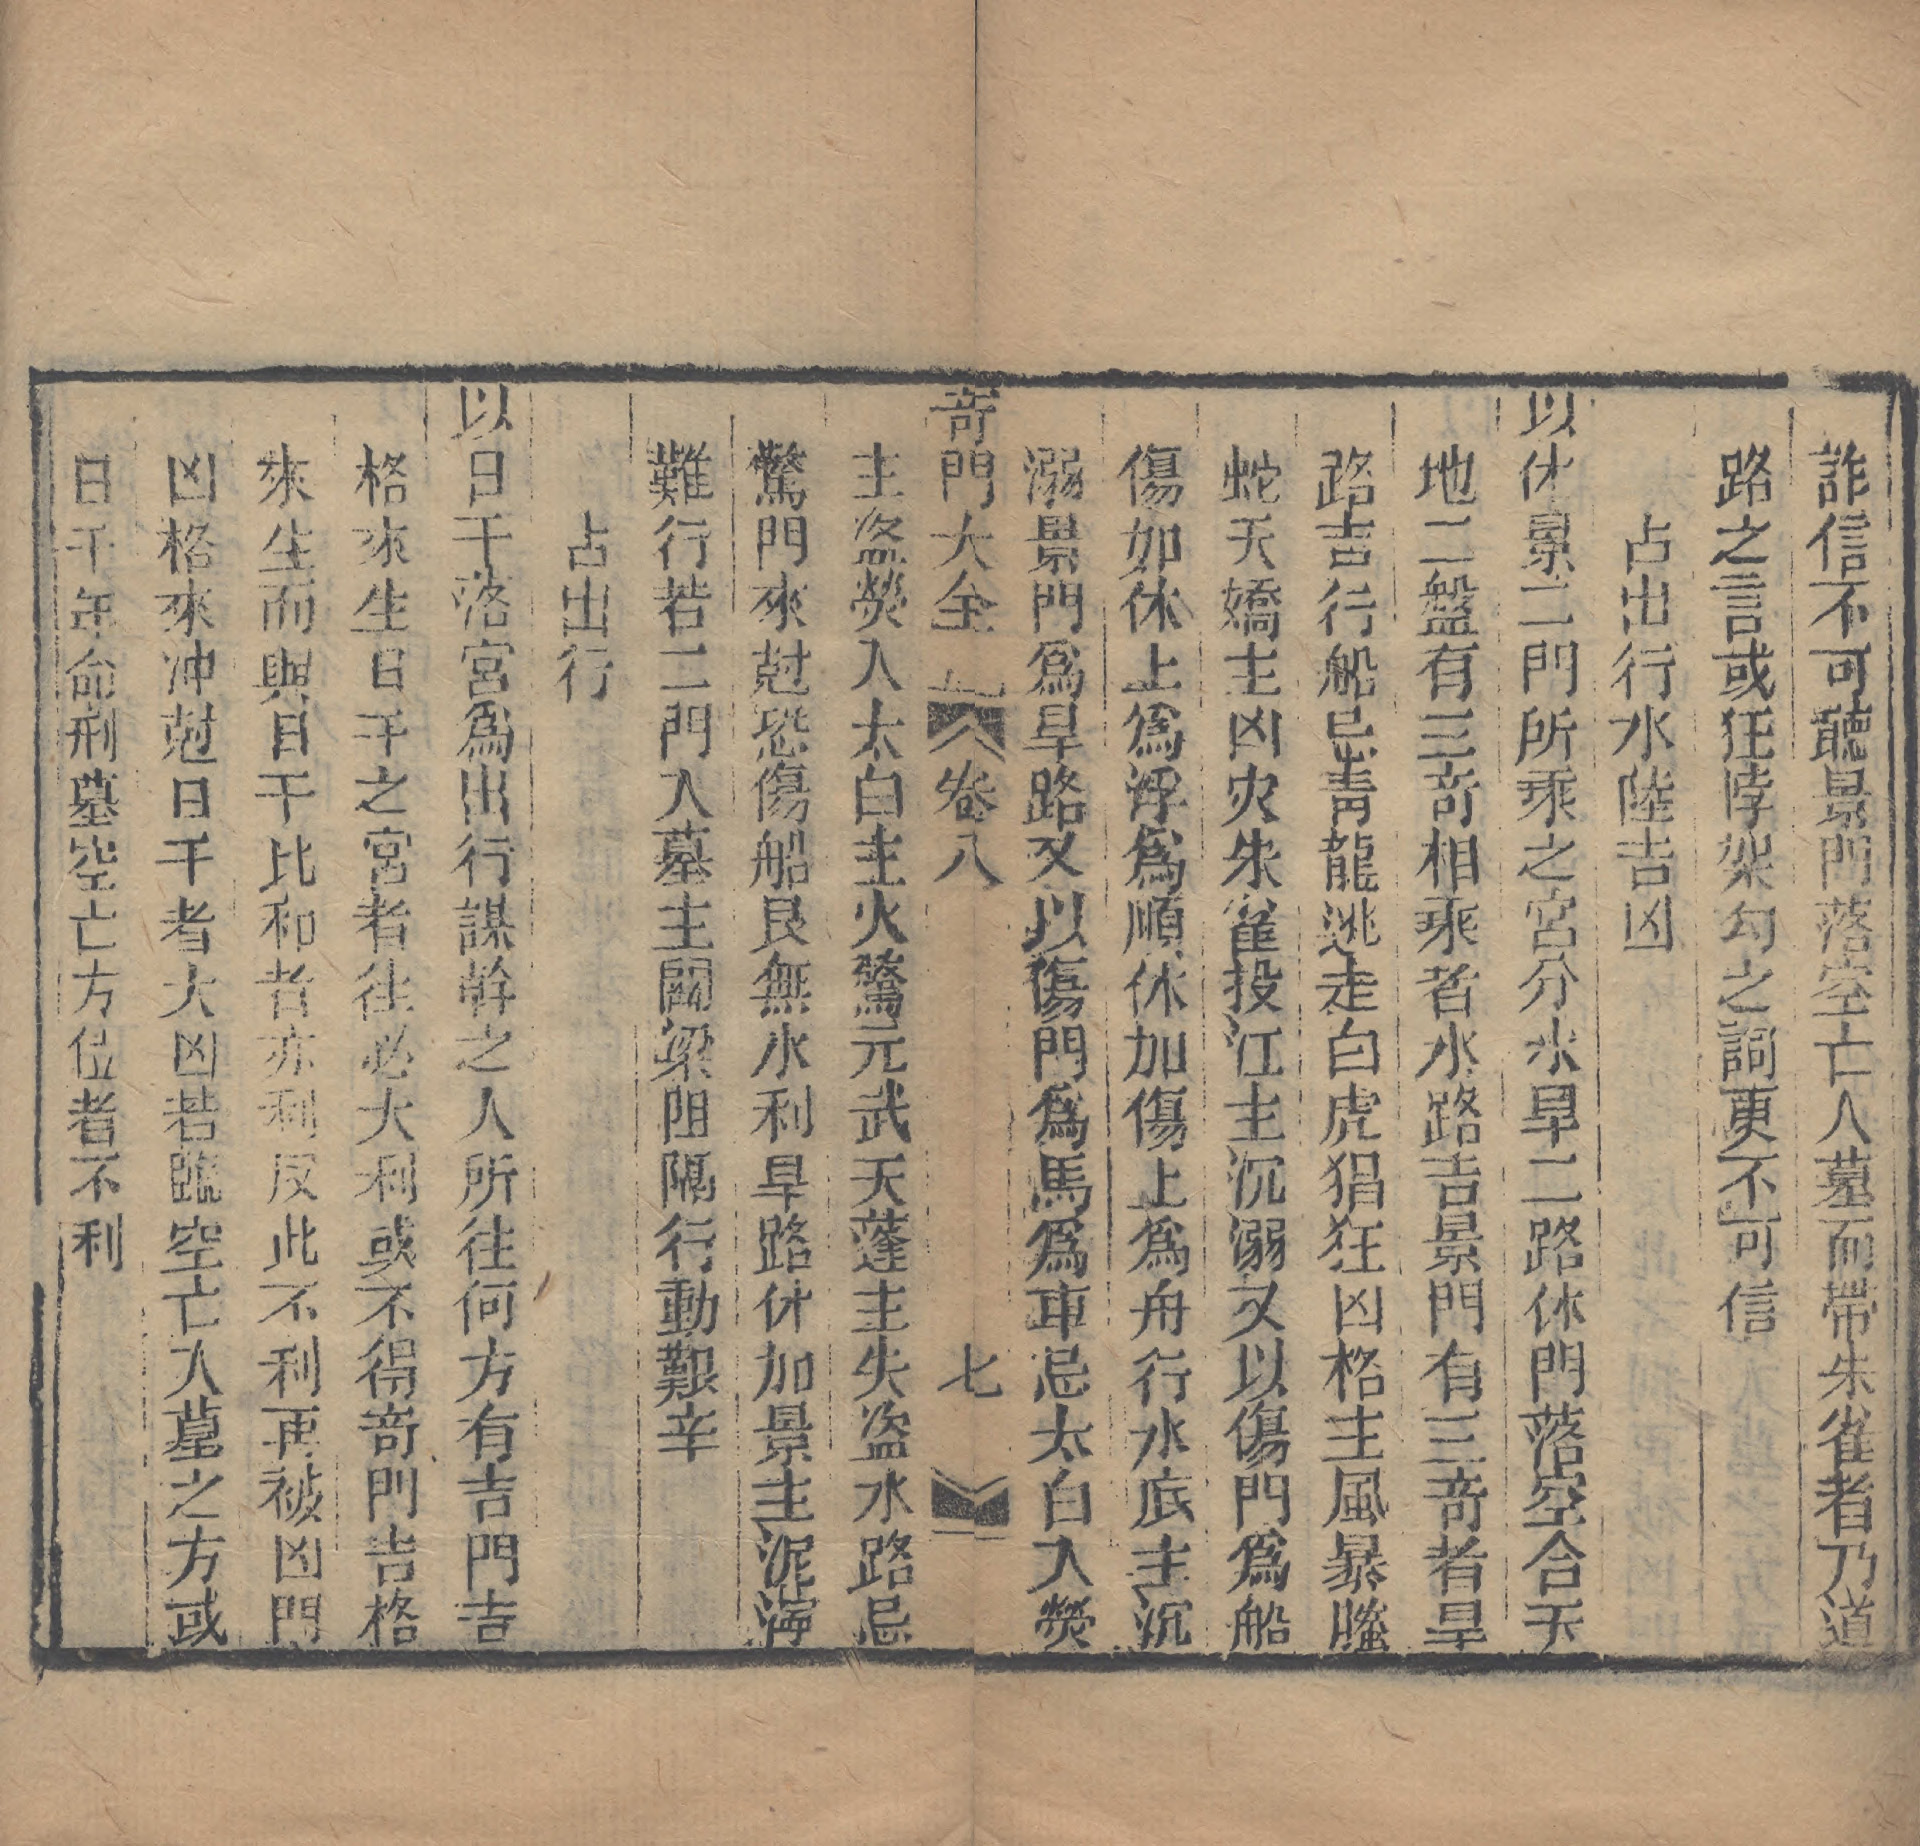 詐信不可聽景門落空亡入墓而帶朱雀者乃道
路之言或狂悖架勾之詞更不可信
占出行水陸吉凶
以休景二門所乘之宮分水旱二路休門落空合天
地二盤有三奇相乘者水路吉景門有三奇者旱
路吉行船忌青龍逃走白虎猖狂凶格主風暴螣
蛇夭矯主凶灾朱雀投江主沉溺又以傷門爲船
傷如休上爲浮爲順休加傷上爲舟行水底主沉
溺景門爲旱路又以傷門爲馬爲車忌太白入熒
奇門大全 卷八 七
主盜熒入太白主火驚元武天蓬主失盜水路忌
驚門來尅恐傷船艮無水利旱路休加景主泥濘
難行若二門入墓主關梁阻隔行動艱辛
占出行
以日干落宮爲出行謀幹之人所往何方有吉門吉
格來生日干之宮者往必大利或不得奇門吉格
來生而與日干比和者亦利反此不利再被凶門
凶格來冲尅日干者大凶若臨空亡入墓之方或
日干年命刑墓空亡方位者不利